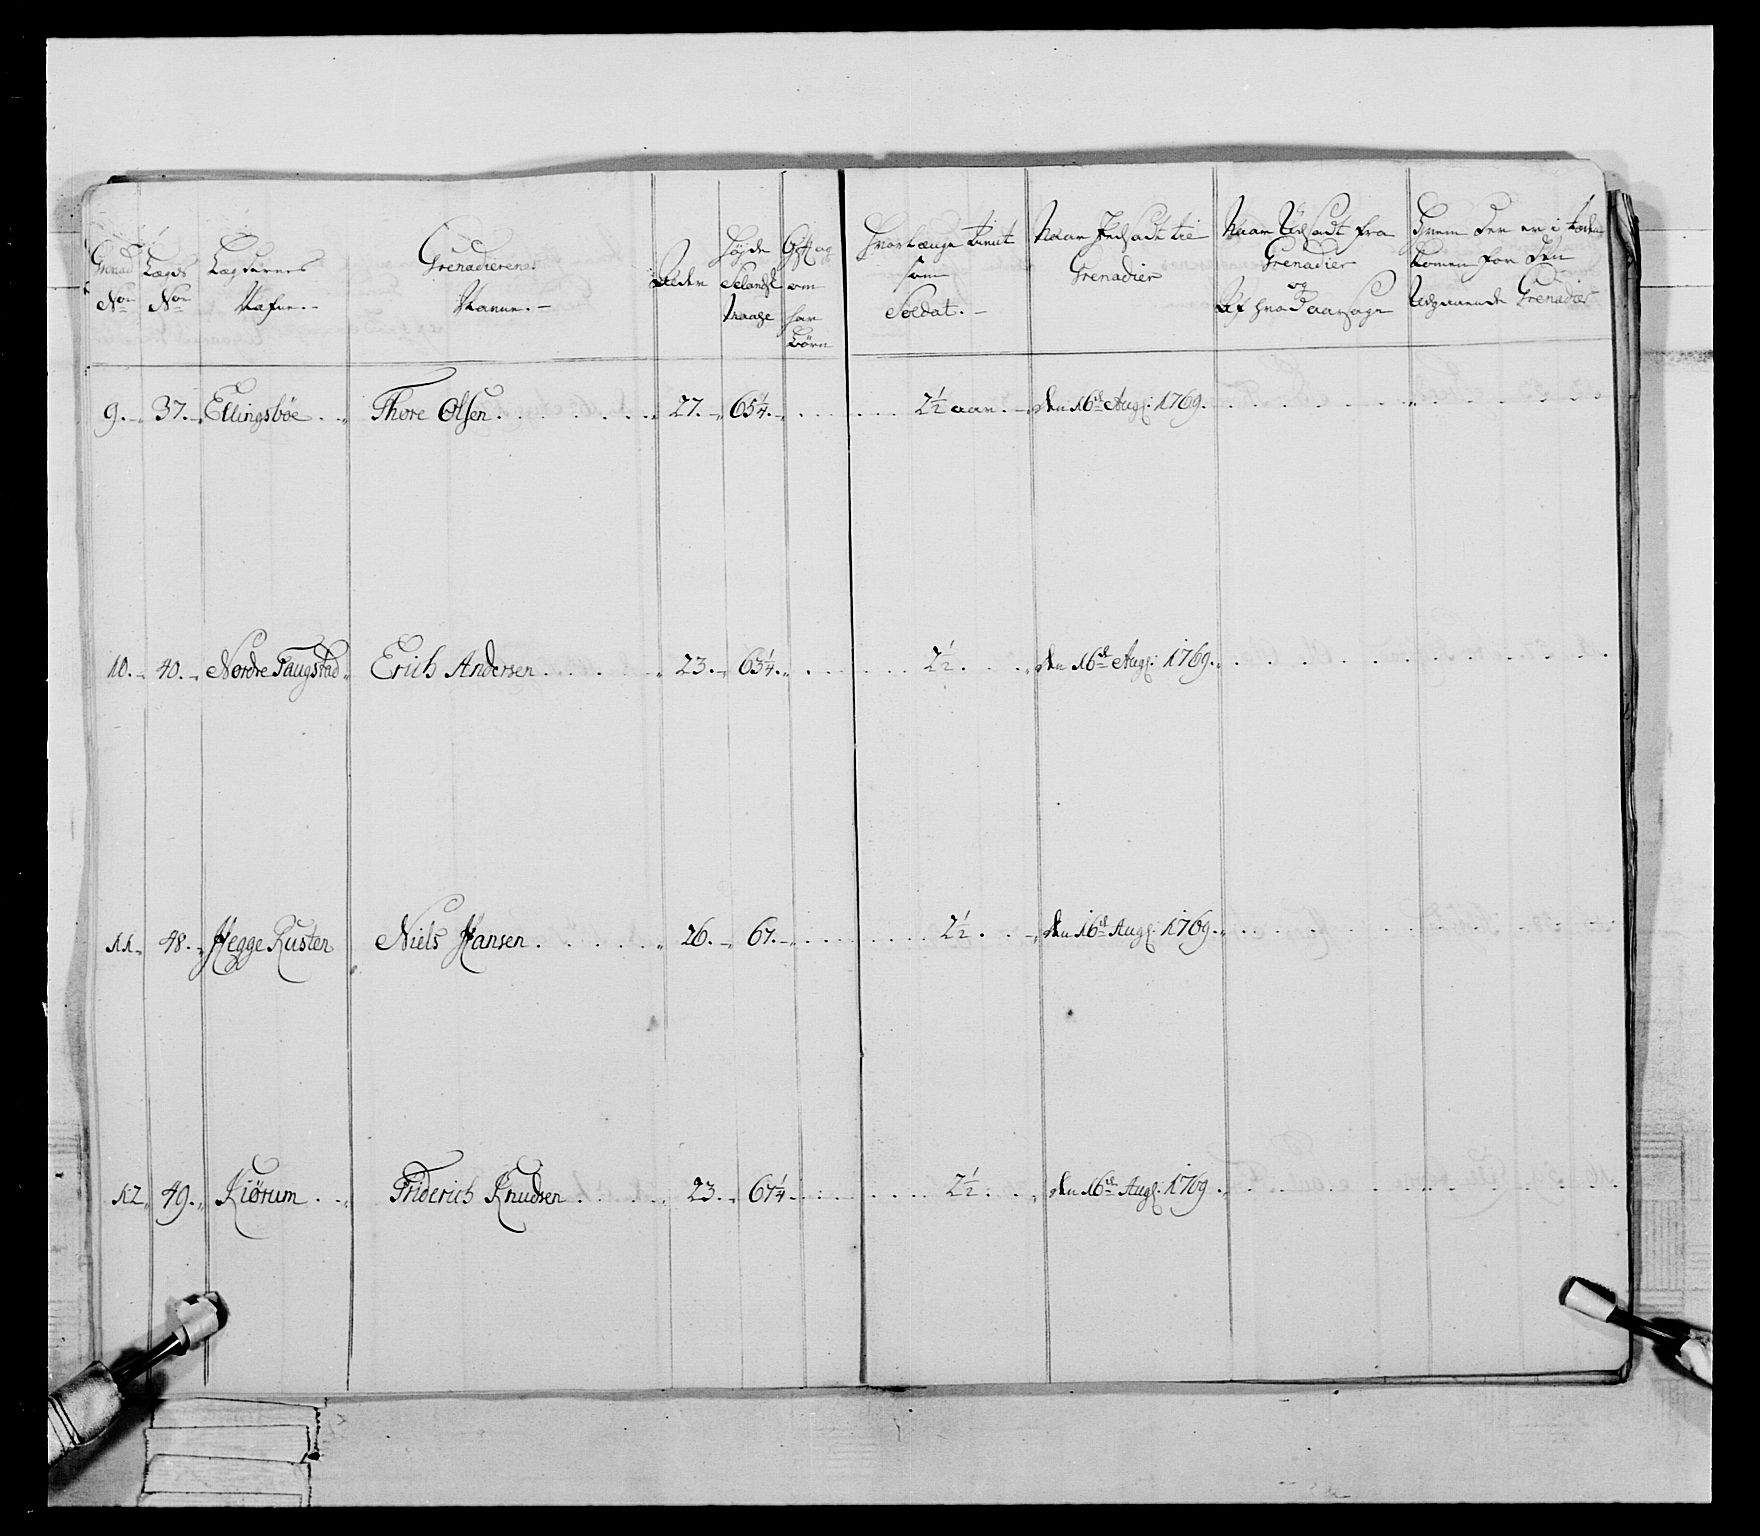 Grenad No | Lægds No | Lægdernes Nafne.- | Grenadierenes Nanne.- | Alder | Høyde Selandsk maase | Gift og om har Børn | Hvor længe tient som Soldat.- | Naar Indsadt til Grenadier | Naar Udsadt fra Grenadier og Af hvad aarsage | Hvem der er i komen for den Udgaaende Grenadier
9. 37. Ellingsbøe. Thore Olsen. 27. 65¼. 2½ aar. den 16de Aug: 1769.
10. 40. Nordre Taugstad Erich Andersen. 23. 63¼. 2½. den 16de Aug: 1769.
11. 48. Hegge Rusten Niels Hansen. 26. 67. 2½. den 16de Aug: 1769.
12. 49. Kiørum. Friderich Knudsen. 23. 67¼. 2½. den 16de Aug: 1769.